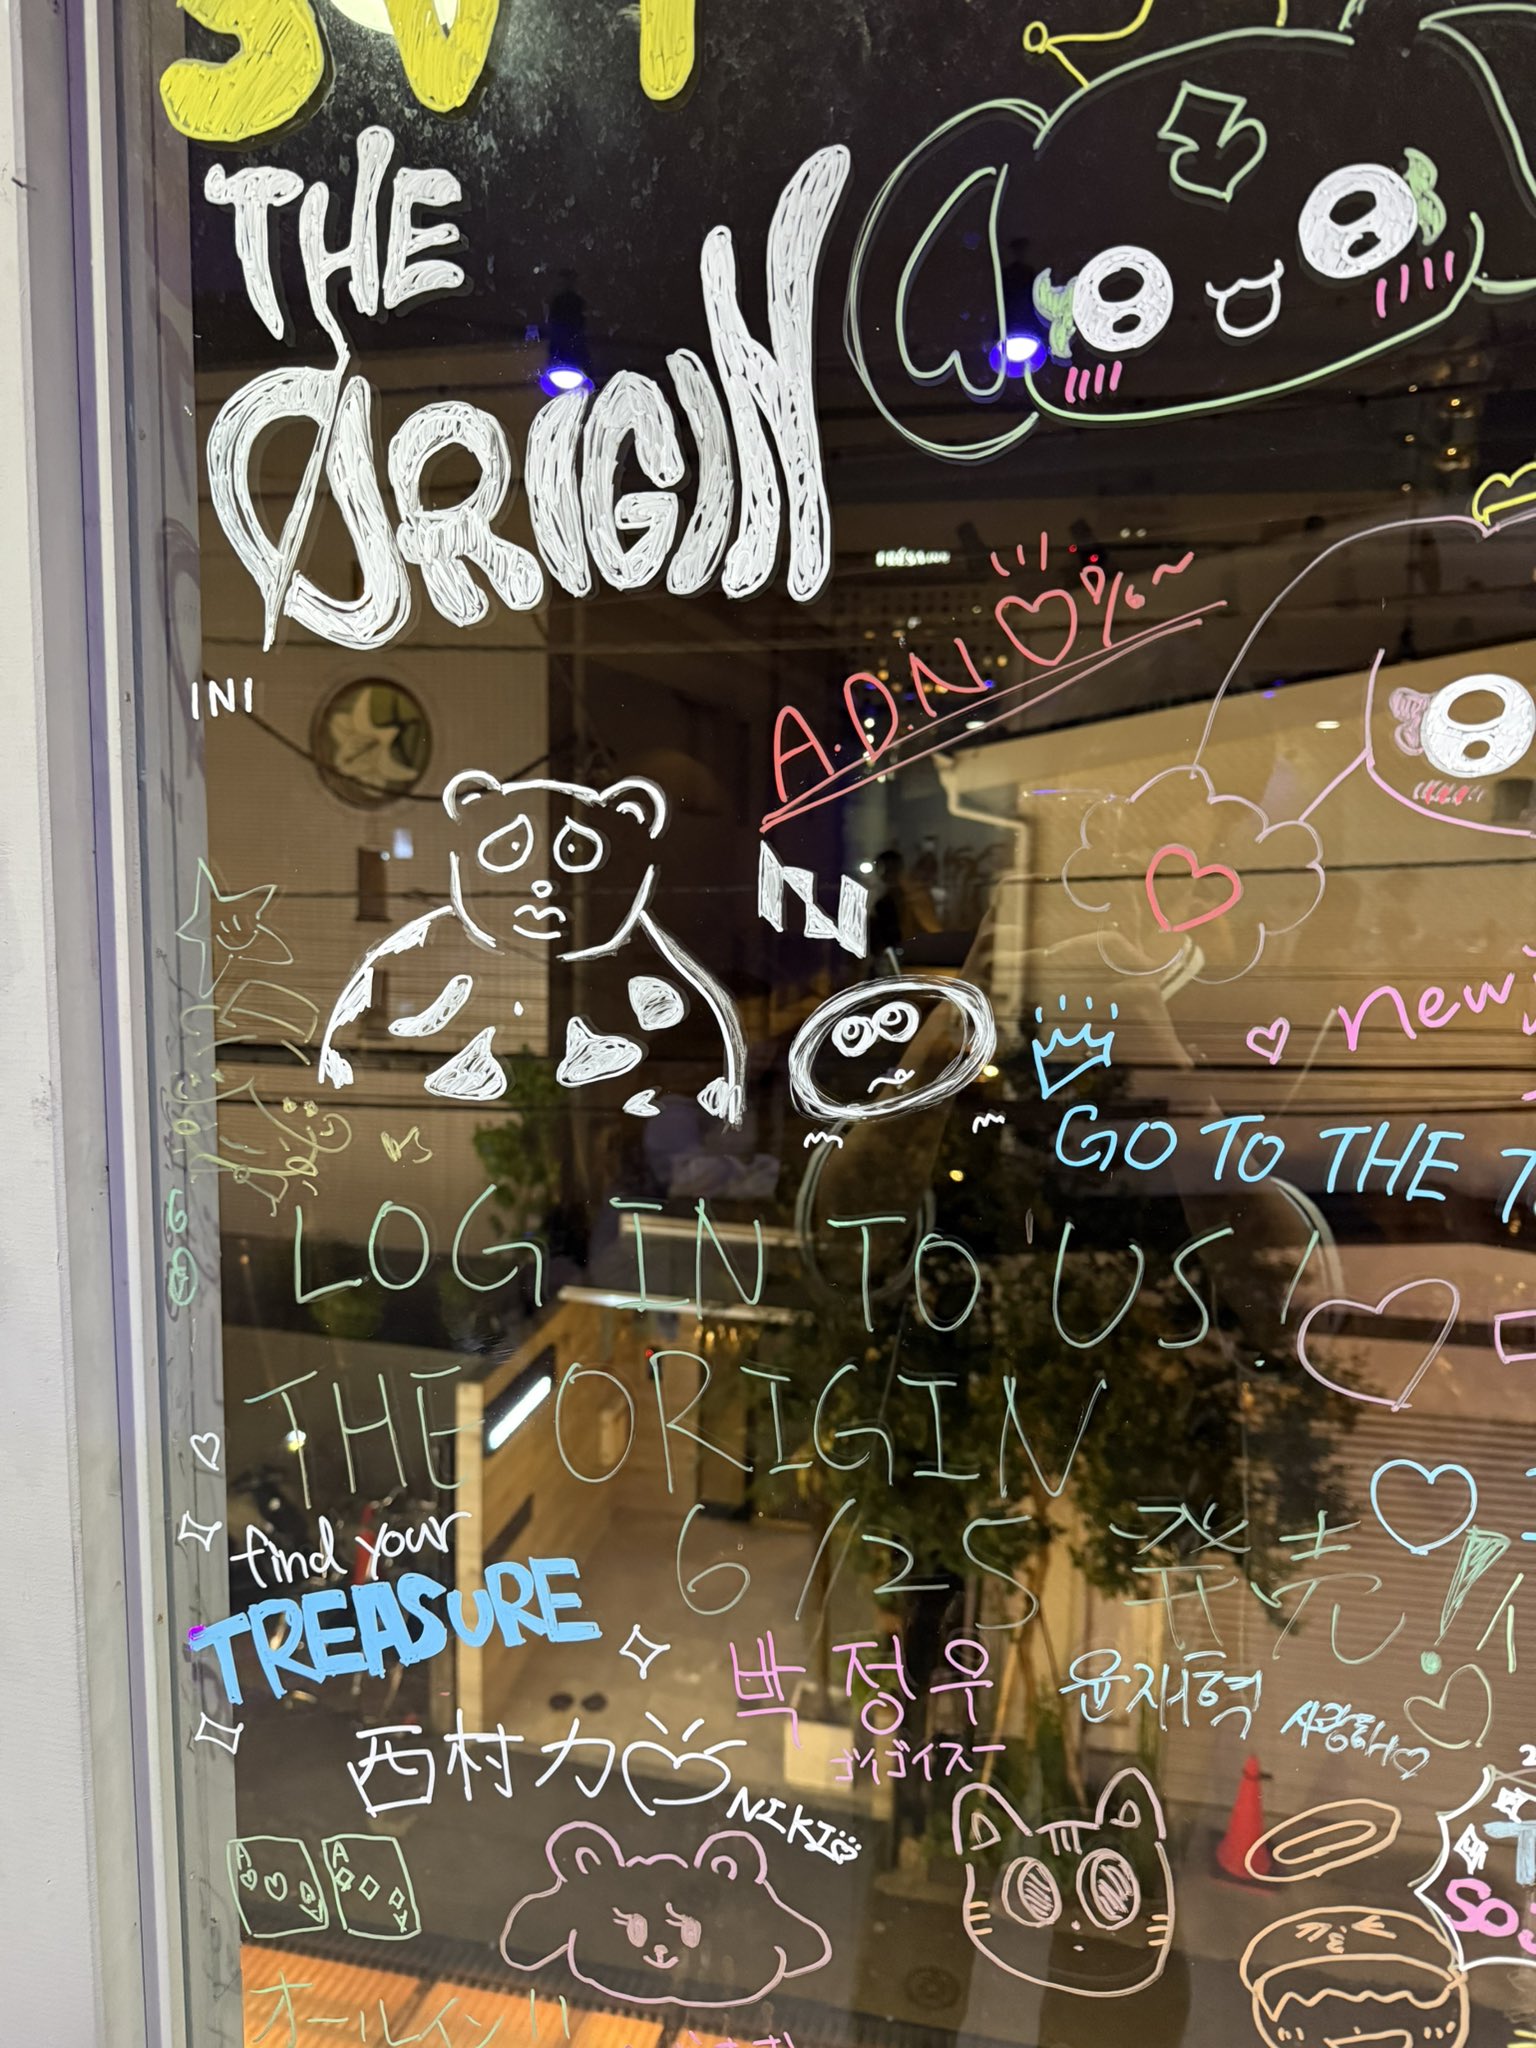 SVT
THE
ORIGIN
INI
A.D.N
new
GO TO THE
LOG IN TO US!
THE ORIGIN
6/25 発売!
find your
TREASURE
박정우
ゴイゴイスー
윤재혁
사랑해
西村力
NIKI
A
A
A
A
So
オールイン!!